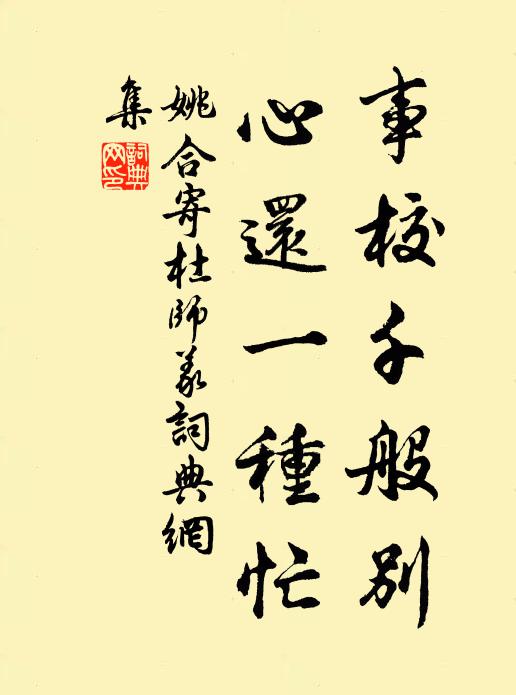 事校千般別
心還一種忙
姚合寄杜師義詞典網
集
詞典
网印